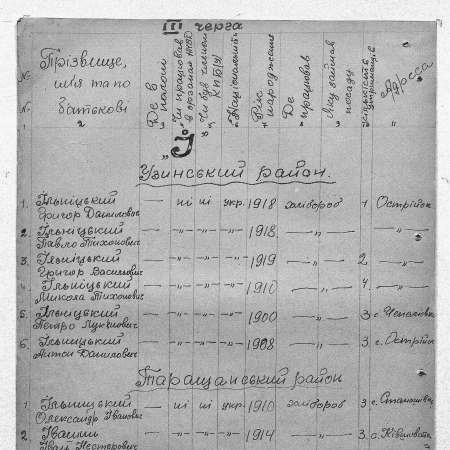 III черга
№ Прізвище, ім'я та по батькові
Де в полоні
Чи працював в органах НКВД
Чи був членом КП(б)У
Національність
Рік народження
Де працював
Яку займав посаду
Кількість утриманців
Адреса
1 2 3 4 5 6 7 8 9 10 11
„І"
Узинський район.
1. Ільніцький Григор Данилович — ні ні укр. 1918 хлібороб 1 Острійок
2. Ільніцький Павло Тихонович — „ — „ — „ — 1918 — „ — — „ —
3. Ільніцький Григор Васильович — „ — „ — „ — 1919 — „ — 2. — „ —
4. Ільніцький Микола Тихонович — „ — „ — „ — 1910 — „ — 4. — „ —
5. Ільніцький Петро Лук'янович — „ — „ — „ — 1900 — „ — 3 с.
6. Ільницький Антон Данилович — „ — „ — „ — 1908 — „ — 3. с. Острійок
Таращанський район
1. Ільницький Олександр Іванович — ні ні укр. 1910 хлібороб 3 с.
2. Івашин Іван Нестерович — „ — „ — „ — 1914 — „ — 3. с.